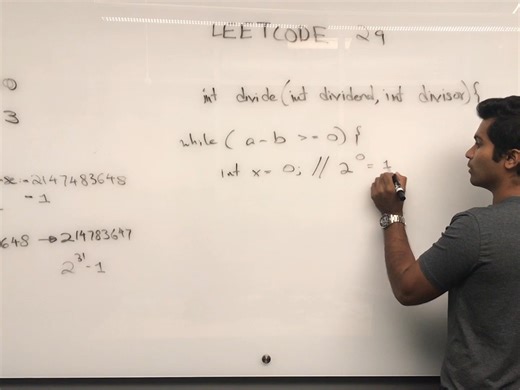 LEETCODE 29
int divide(int dividend, int divisor){
while ( a - b >= 0) {
int x = 0; // 2^0 = 1
0
3
-2147483648
= 1
648 → 214783647
2^31 - 1